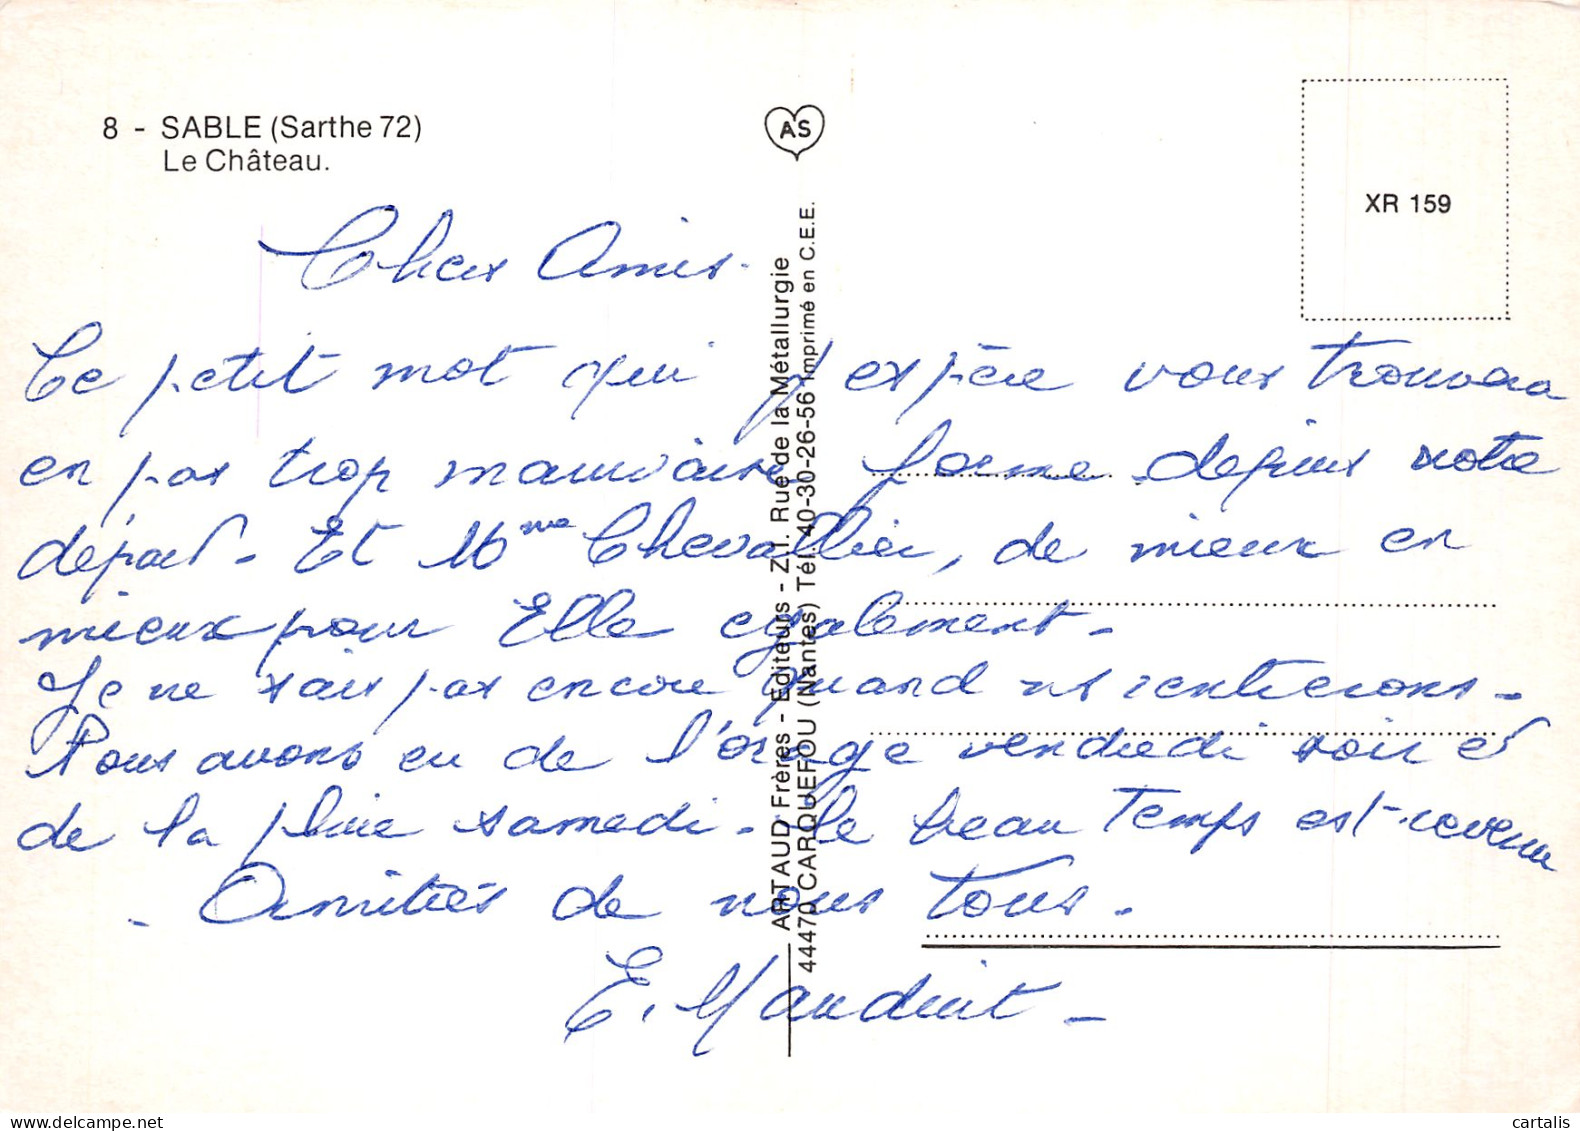 8 - SABLE (Sarthe 72)
Le Château.
AS
XR 159
ARTAUD Frères - Editeurs - Z.I. Rue de la Métallurgie
44470 CARQUEFOU (Nantes) Tél. 40-30-26-56 Imprimé en C.E.E.
Chers Amis.
Ce petit mot qui j'espère vous trouvera
en pas trop mauvaise forme depuis notre
départ. Et Mme Chevallier, de mieux en
mieux pour Elle egalement.
Je ne sais pas encore quand ns rentrerons.
Nous avons eu de l'orage vendredi soir et
de la pluie samedi. le beau Temps est revenu
. Amitiés de nous Tous.
E. Mauduit -
cartalis
www.delcampe.net